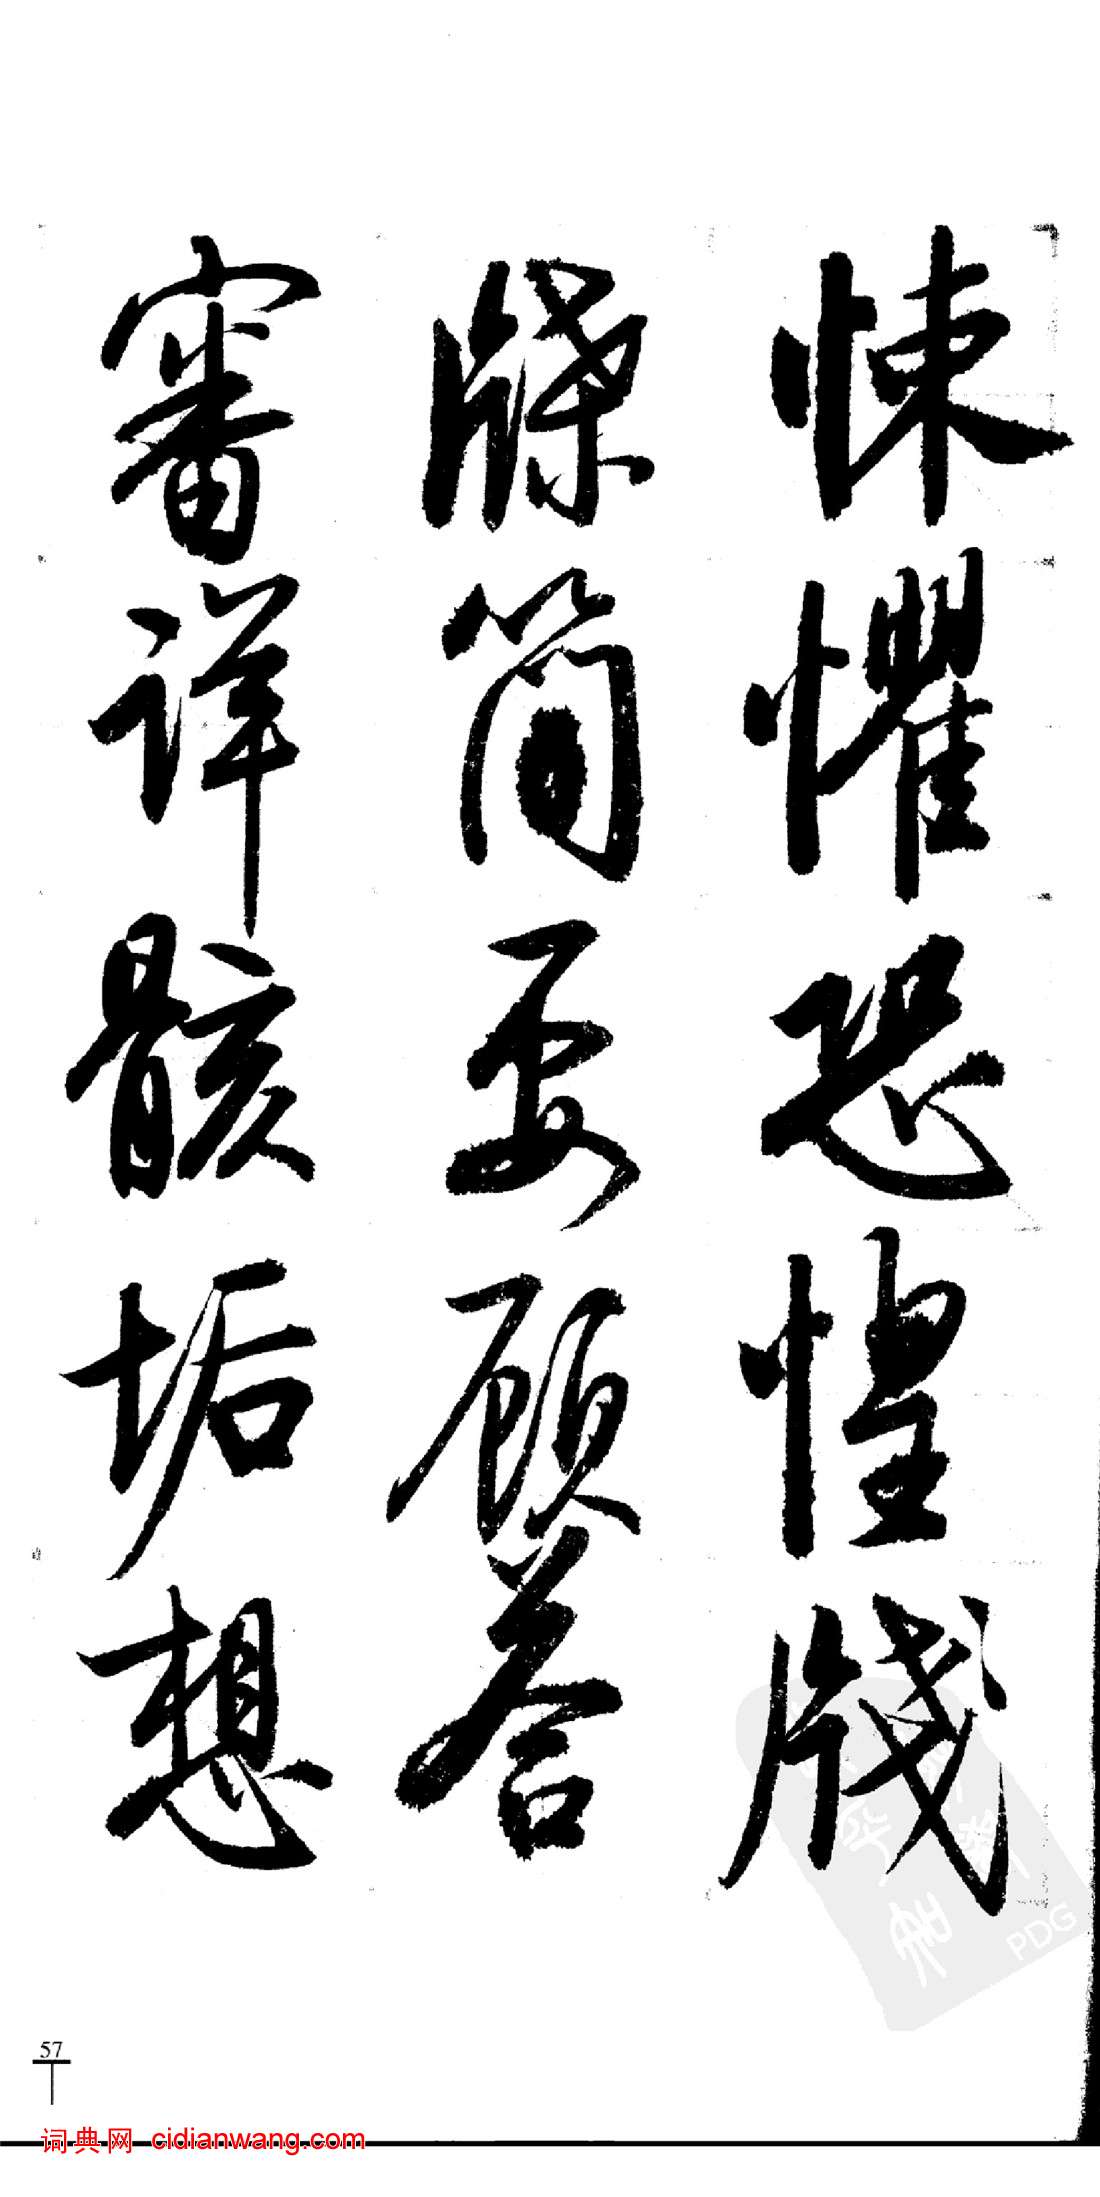 悚懼恐惶牋
牒简要顾荅
審詳骸垢想
57
词典网 cidianwang.com
PDG